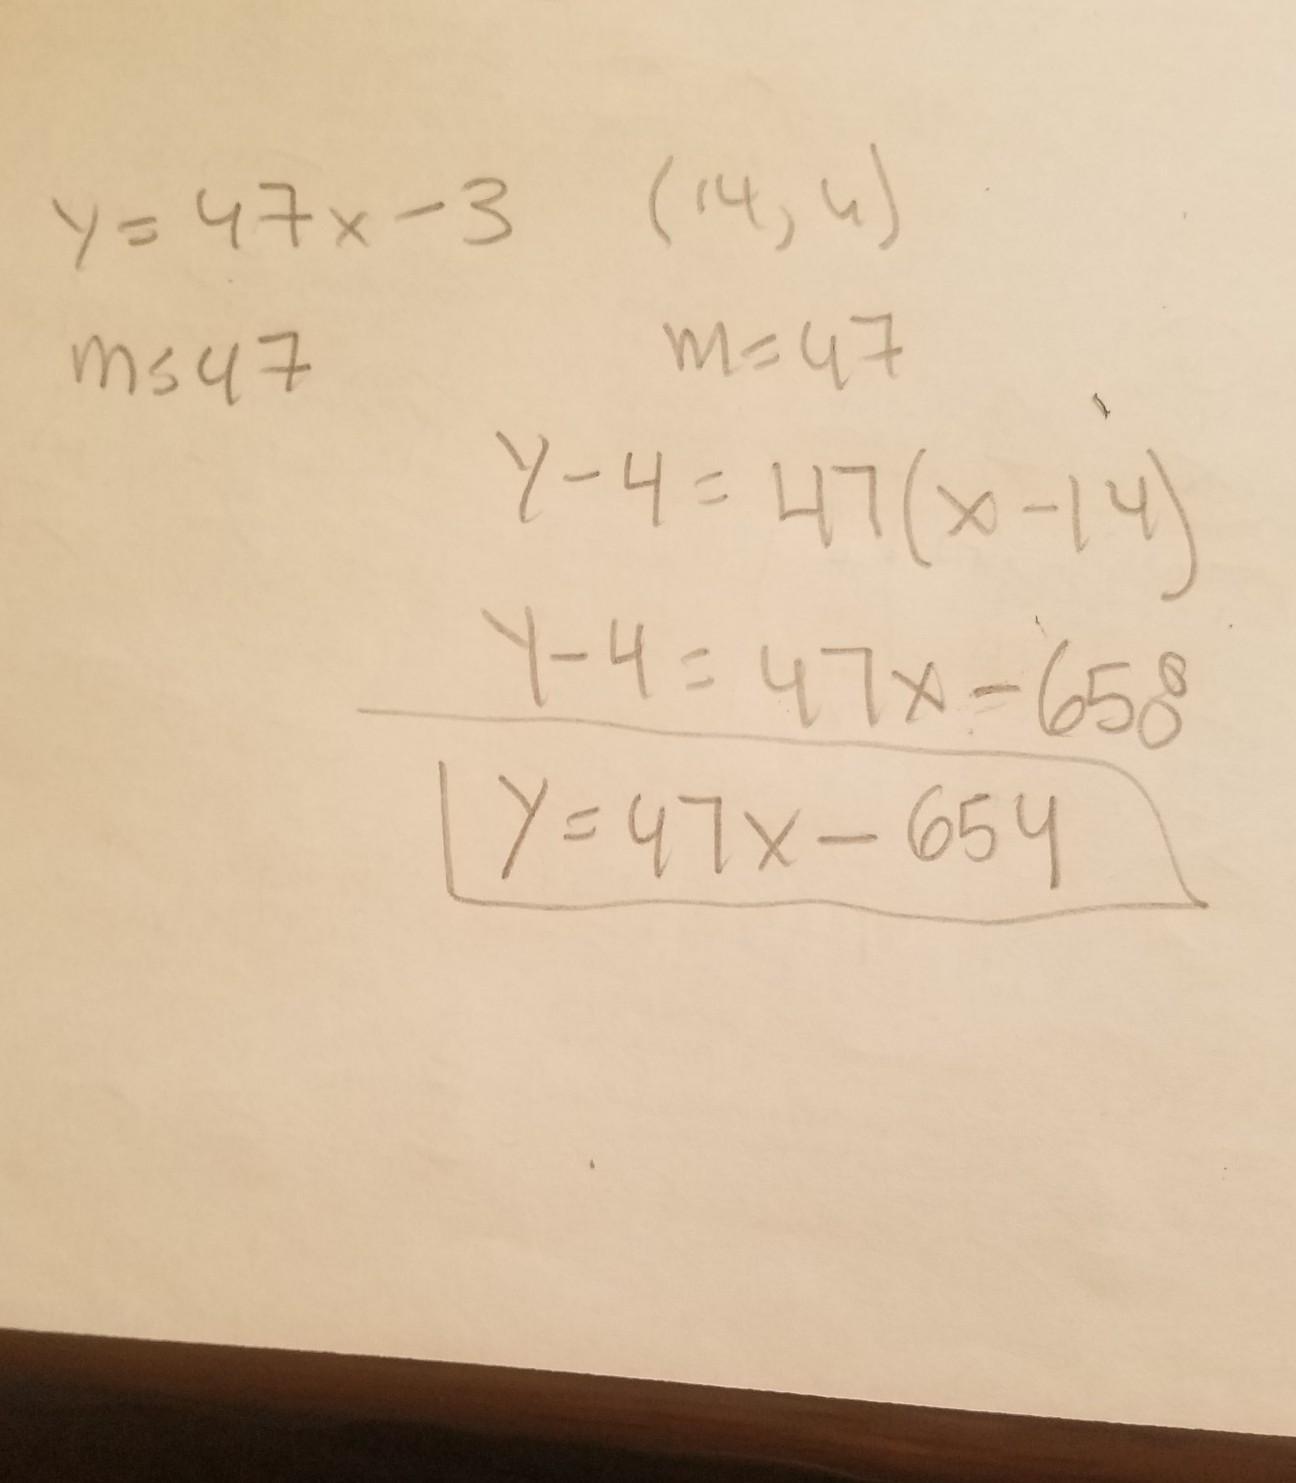 y = 47x - 3 (14, 4)
m = 47 m = 47
y - 4 = 47(x - 14)
y - 4 = 47x - 658
y = 47x - 654